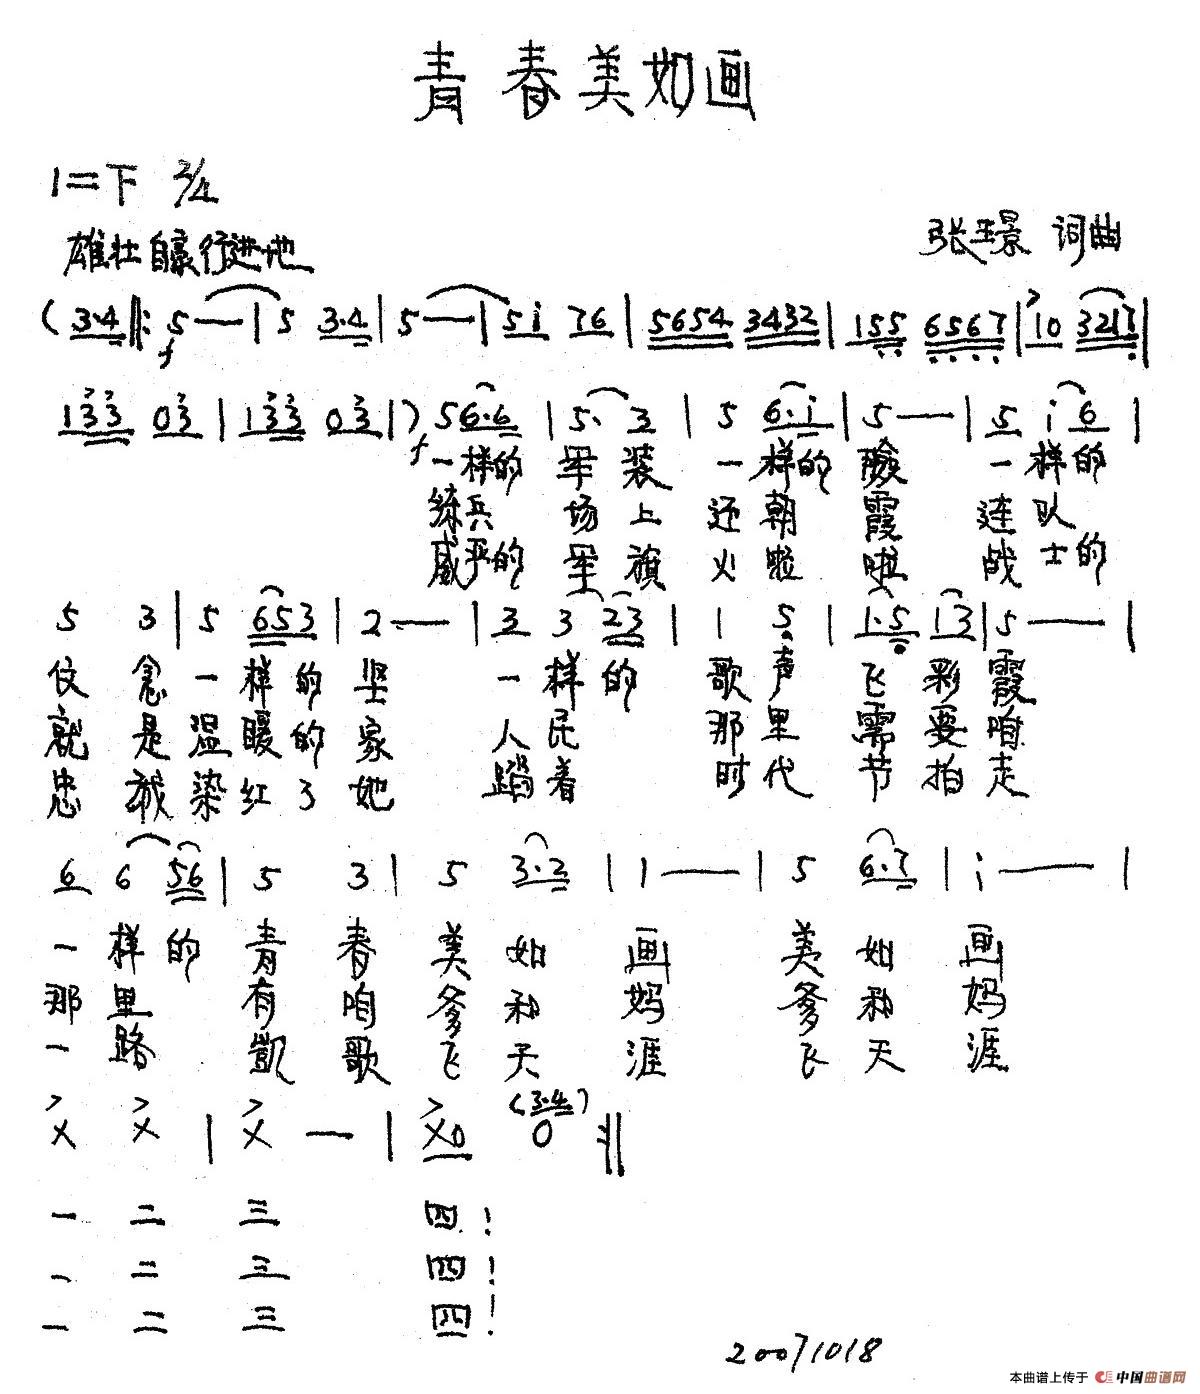 青春美如画
1=下 2/4
雄壮自豪行进地
张璟 词曲
(3·4‖: 5 — | 5 3·4 | 5 — | 5i 76 | 5654 3432 | 155 6567 | 10 3217 |
133 03 | 133 03 |) 5 6·6 | 5· 3 | 5 6·i | 5 — | 5 i 6 |
f
f
一样的 军装 一样的 脸 一样的
练兵 场上 还朝霞 连队
威严的 军旗 火啦啦 战士的
5 3 | 5 653 | 2 — | 3 3 23 | 1 5 | 1·5 13 | 5 — |
仗念一样的坚 一样的 歌声飞彩霞
就是温暖的家 人民 那里需要咱
忠诚染红了她 踏着 时代节拍走
6 6 56 | 5 3 | 5 3·2 | 1 — | 5 6·7 | i — |
一样的 青春美如画 美如画
那里 有咱爹和妈 爹和妈
一路 凯歌飞天涯 飞天涯
X X | X — | X0 (3·4) 0 :‖
一 二 三 四!
一 二 三 四!
一 二 三 四!
20071018
本曲谱上传于 中国曲谱网